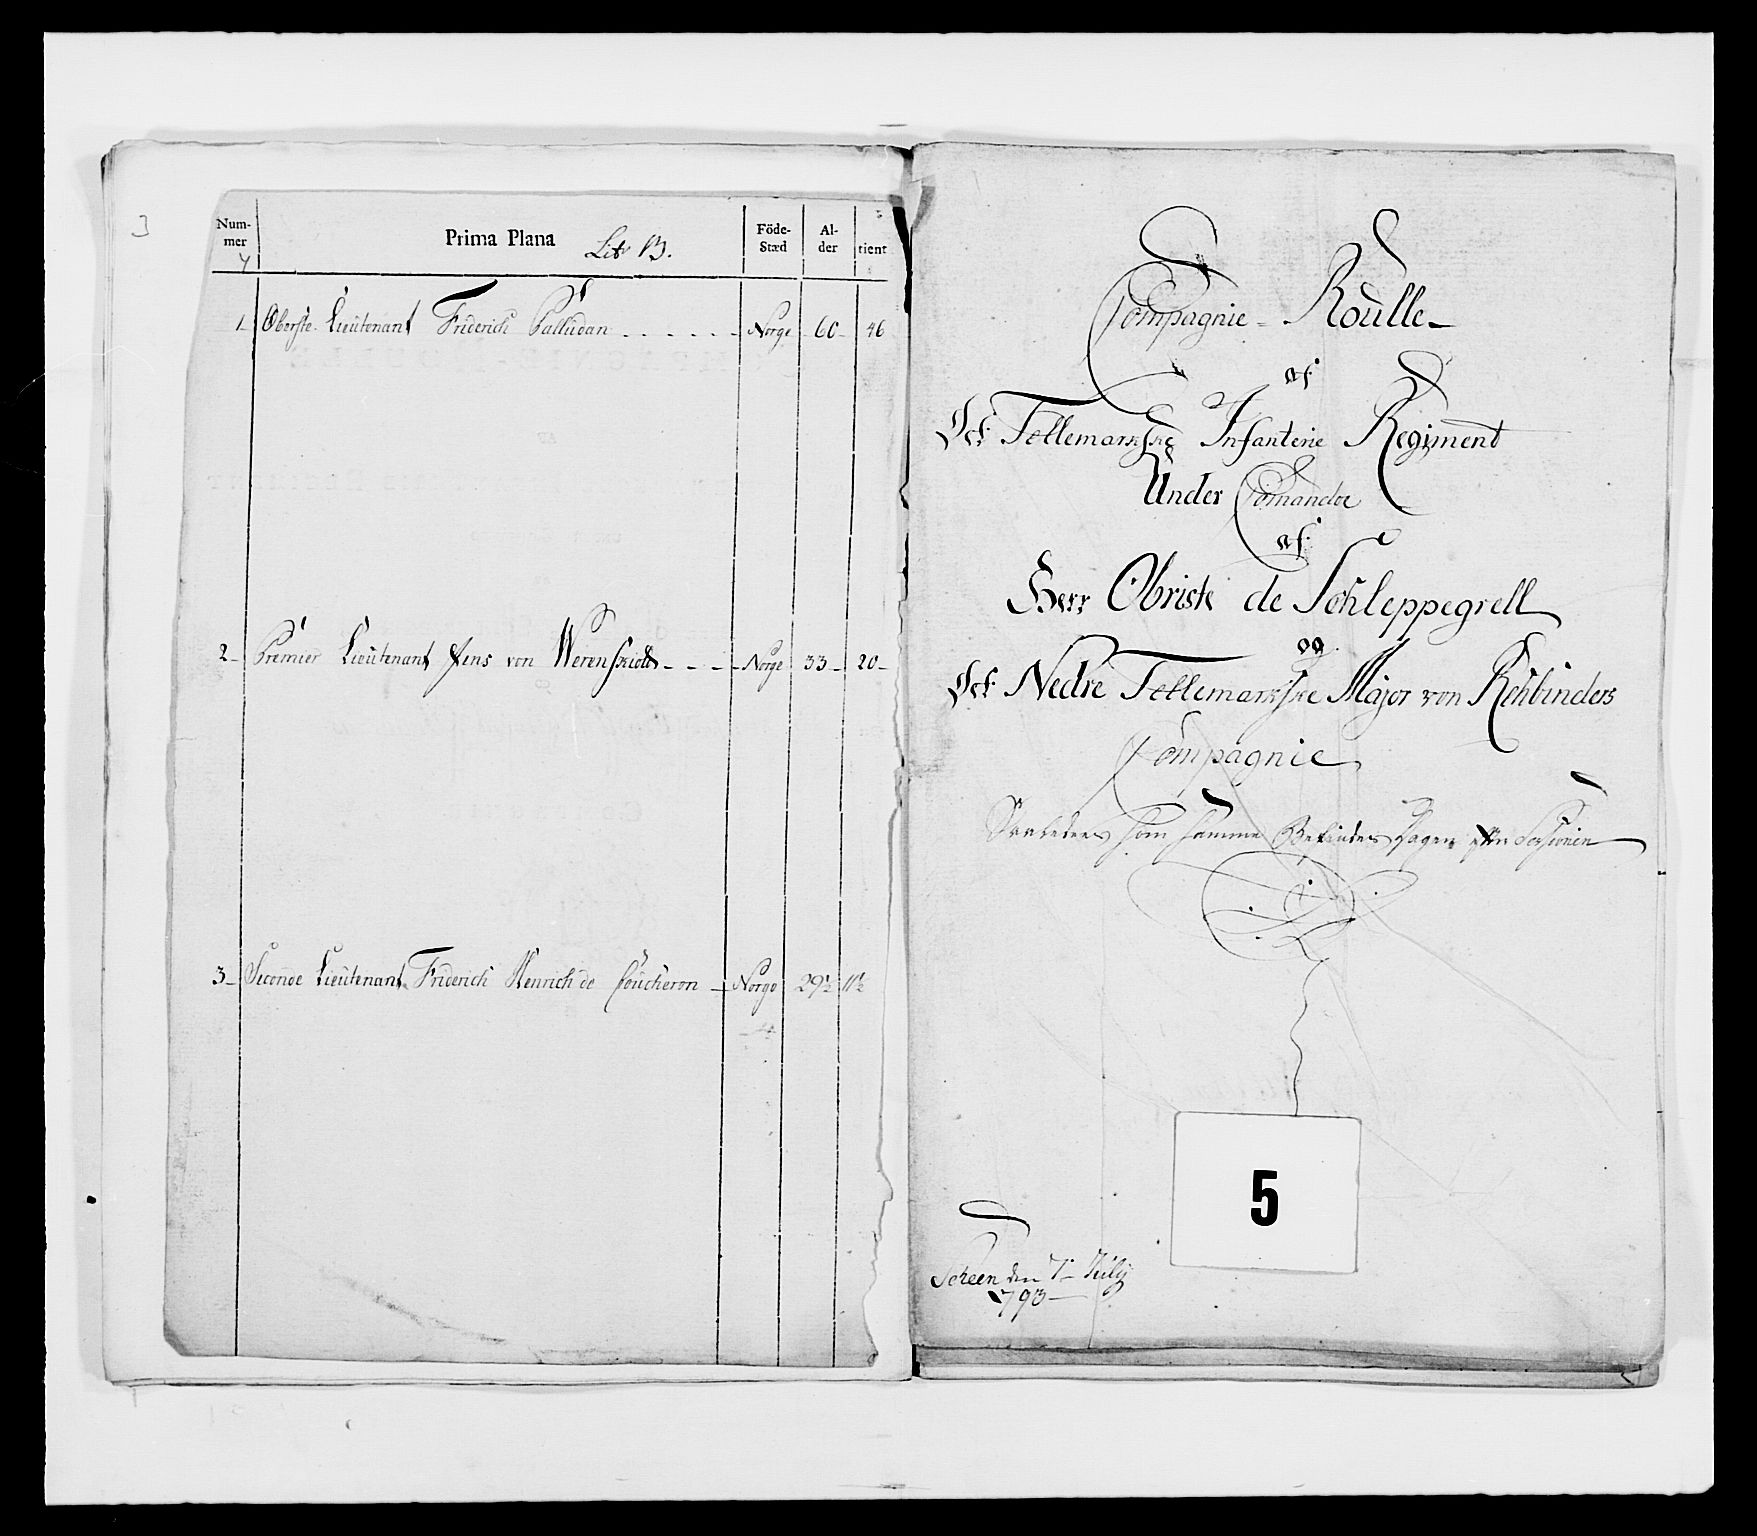 Num-
mer
Prima Plana Litr B.
Föde-
Stæd
Al-
der
tient
1 Oberste Lieutenant Friderich Palludan Norge 60 46
2 Premier Lieutenant Jens von Werenskiold Norge 33 20
3 Seconde Lieutenant Friderich Henrich de Coucheron Norge 29½ 11½
Compagnie Roulle
af
Det Tellemarkske Infanterie Regiment
Under Comando
af
Herr Obriste de Schleppegrell
og
Det Nedre Tellemarkske Major von Rehbinders
Compagnie
Saaledes som samme Befindes Dagen efter Sessionen
5
Scheen den 7 July
1793